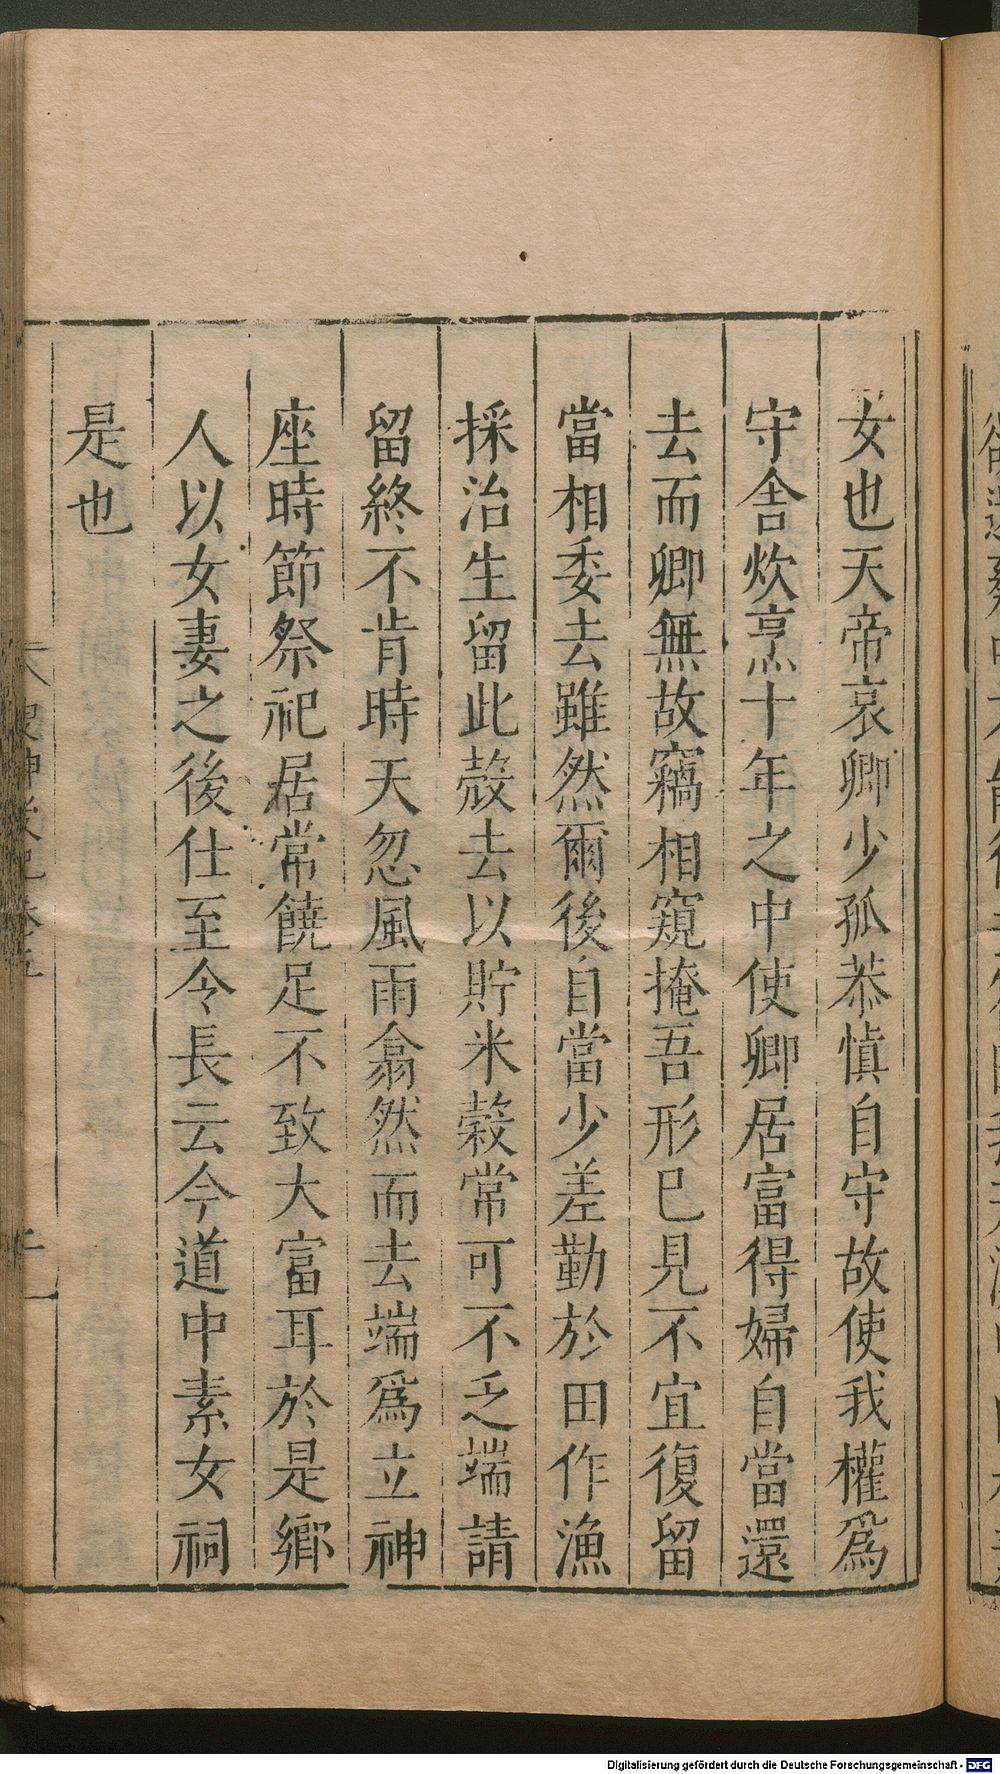 女也天帝哀卿少孤恭慎自守故使我權爲
守舍炊烹十年之中使卿居富得婦自當還
去而卿無故竊相窺掩吾形已見不宜復留
當相委去雖然爾後自當少差勤於田作漁
採治生留此殼去以貯米穀常可不乏端請
留終不肯時天忽風雨翕然而去端爲立神
座時節祭祀居常饒足不致大富耳於是鄉
人以女妻之後仕至令長云今道中素女祠
是也
Digitalisierung gefördert durch die Deutsche Forschungsgemeinschaft - DFG